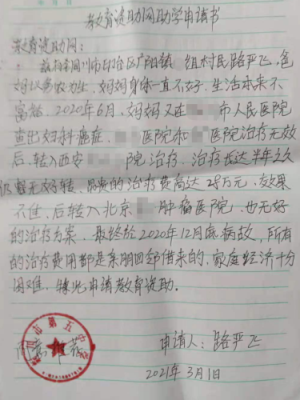 教育资助网助学申请书
教育资助网:
组村民路严飞,爸
妈以务农为生,妈妈身体一直不好,生活本来不
富裕,2020年6月,妈妈又在 市人民医院
查出妇科癌症, 医院和 医院治疗无效
后,转入西安 院治疗,治疗长达半年之
久,毫无好转,昂贵的治疗费高达28万元,效果
不佳,后转入北京 肿瘤医院,也无好
的治疗方案,最终於2020年12月麻病故,所有
的治疗费用都是亲朋四邻借来的,家庭经济十分
困难,特此申请教育资助。
申请人:路严飞
2021年3月1日